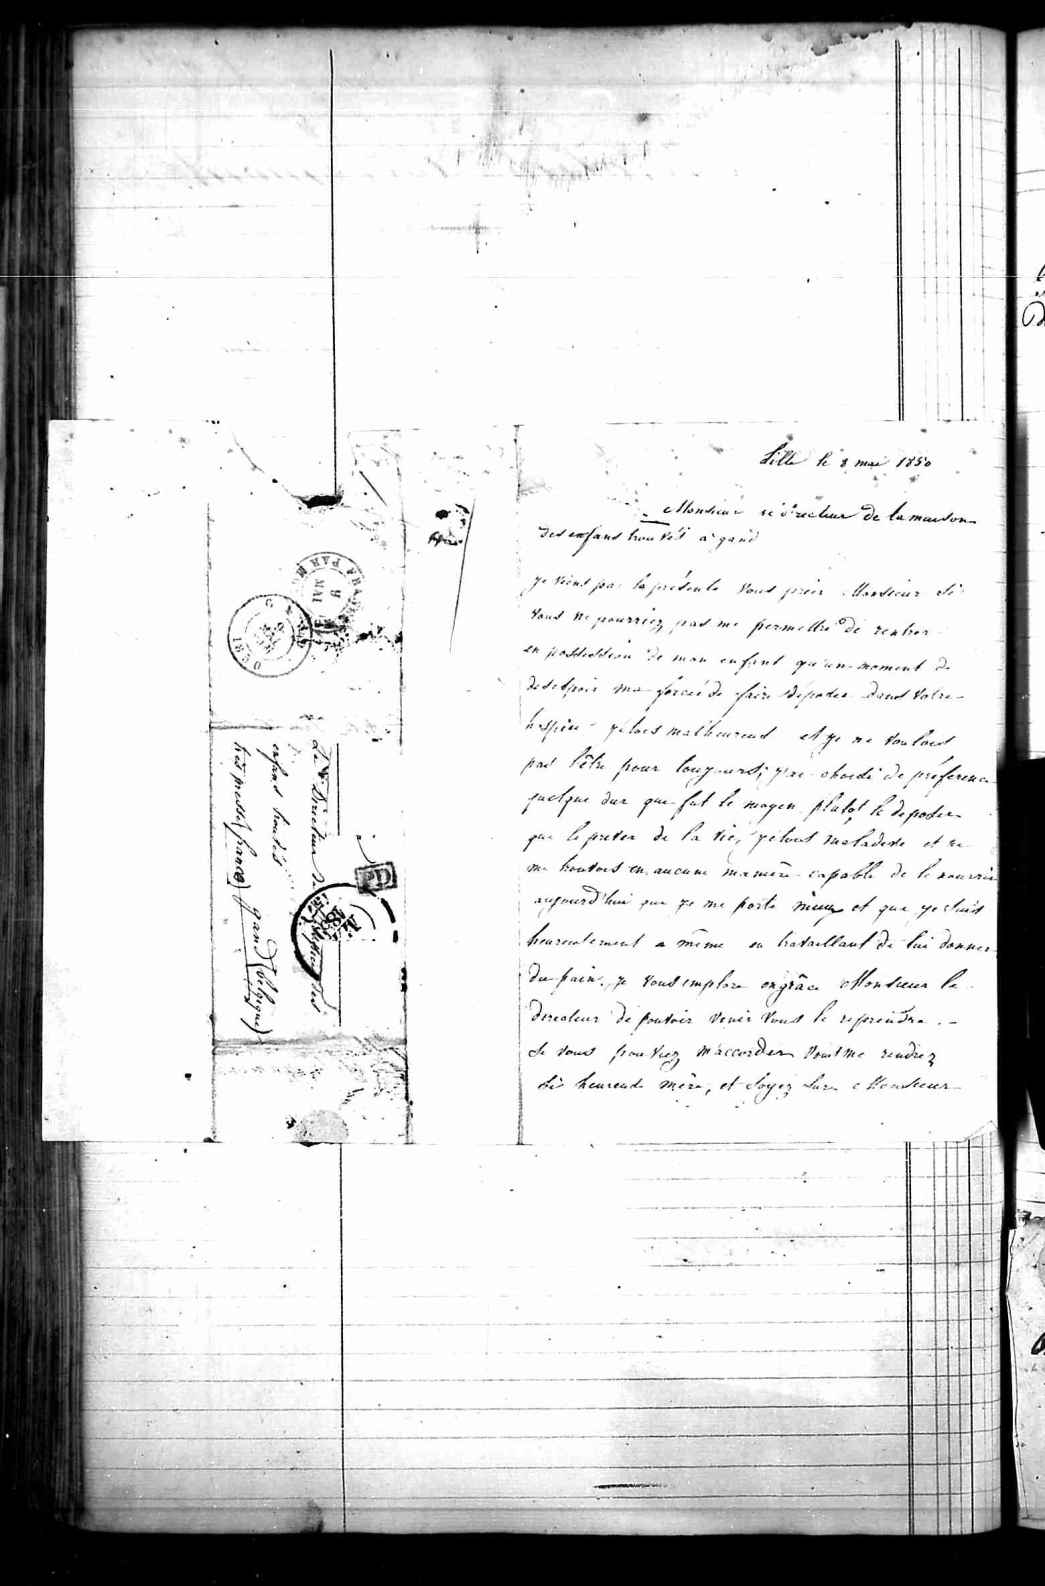 Lille le 8 mai 1850
Monsieur le directeur de la maison
des enfans trouvés a gand
je viens par la présente vous prier Monsieur si
vous ne pourriez pas me permettre de rentrer
en possession de mon enfant qu'un moment de
desespoir ma forcée de faire déposer dans votre
hospice j'etois malheureuse et je ne voulois
pas l'être pour toujours, j'ai choisi de préference
quelque dur que fut le moyen plutot le deposer
que le priver de la vie, j'etois malade et ne
me trouvois en aucune maniere capable de le nourrir
aujourd'hui que je me porte mieux et que je suis
heureusement a même en travaillant de lui donner
du pain, je vous implore en grâce Monsieur le
directeur de pouvoir venir vous le reprendre.
Si vous pouviez m'accorder vous me rendrez
bien heureuse mère, et soyez sur Monsieur
Le Directeur de
des
enfans trouvés
très pressé franco gand (belgique)
PD
GAND
1851
9
MAI
FRANCE PAR